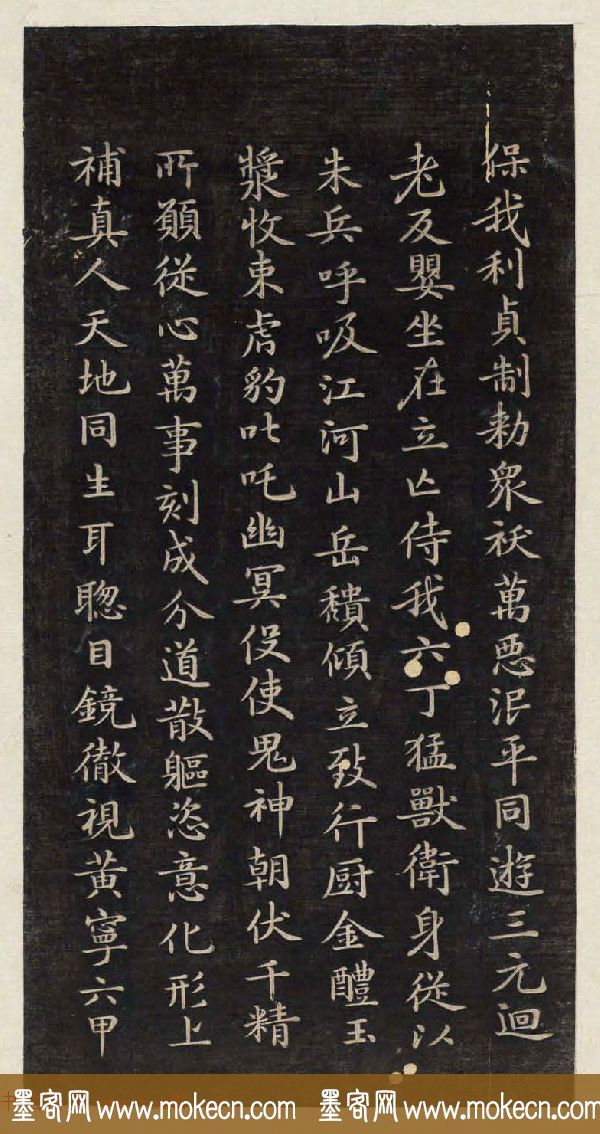 保我利貞制勑衆祅萬惡泯平同遊三元迴
老反嬰坐在立亡侍我六丁猛獸衛身從以
朱兵呼吸江河山岳穨傾立致行厨金醴玉
漿收束虐豹叱吒幽冥役使鬼神朝伏千精
所願從心萬事刻成分道散軀恣意化形上
補真人天地同生耳聰目鏡徹視黃寧六甲
墨客网 www.mokecn.com 墨客网 www.mokecn.com